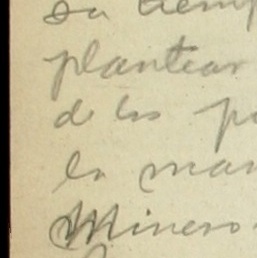 su tiemp
plantear
de los p
la man
Minero